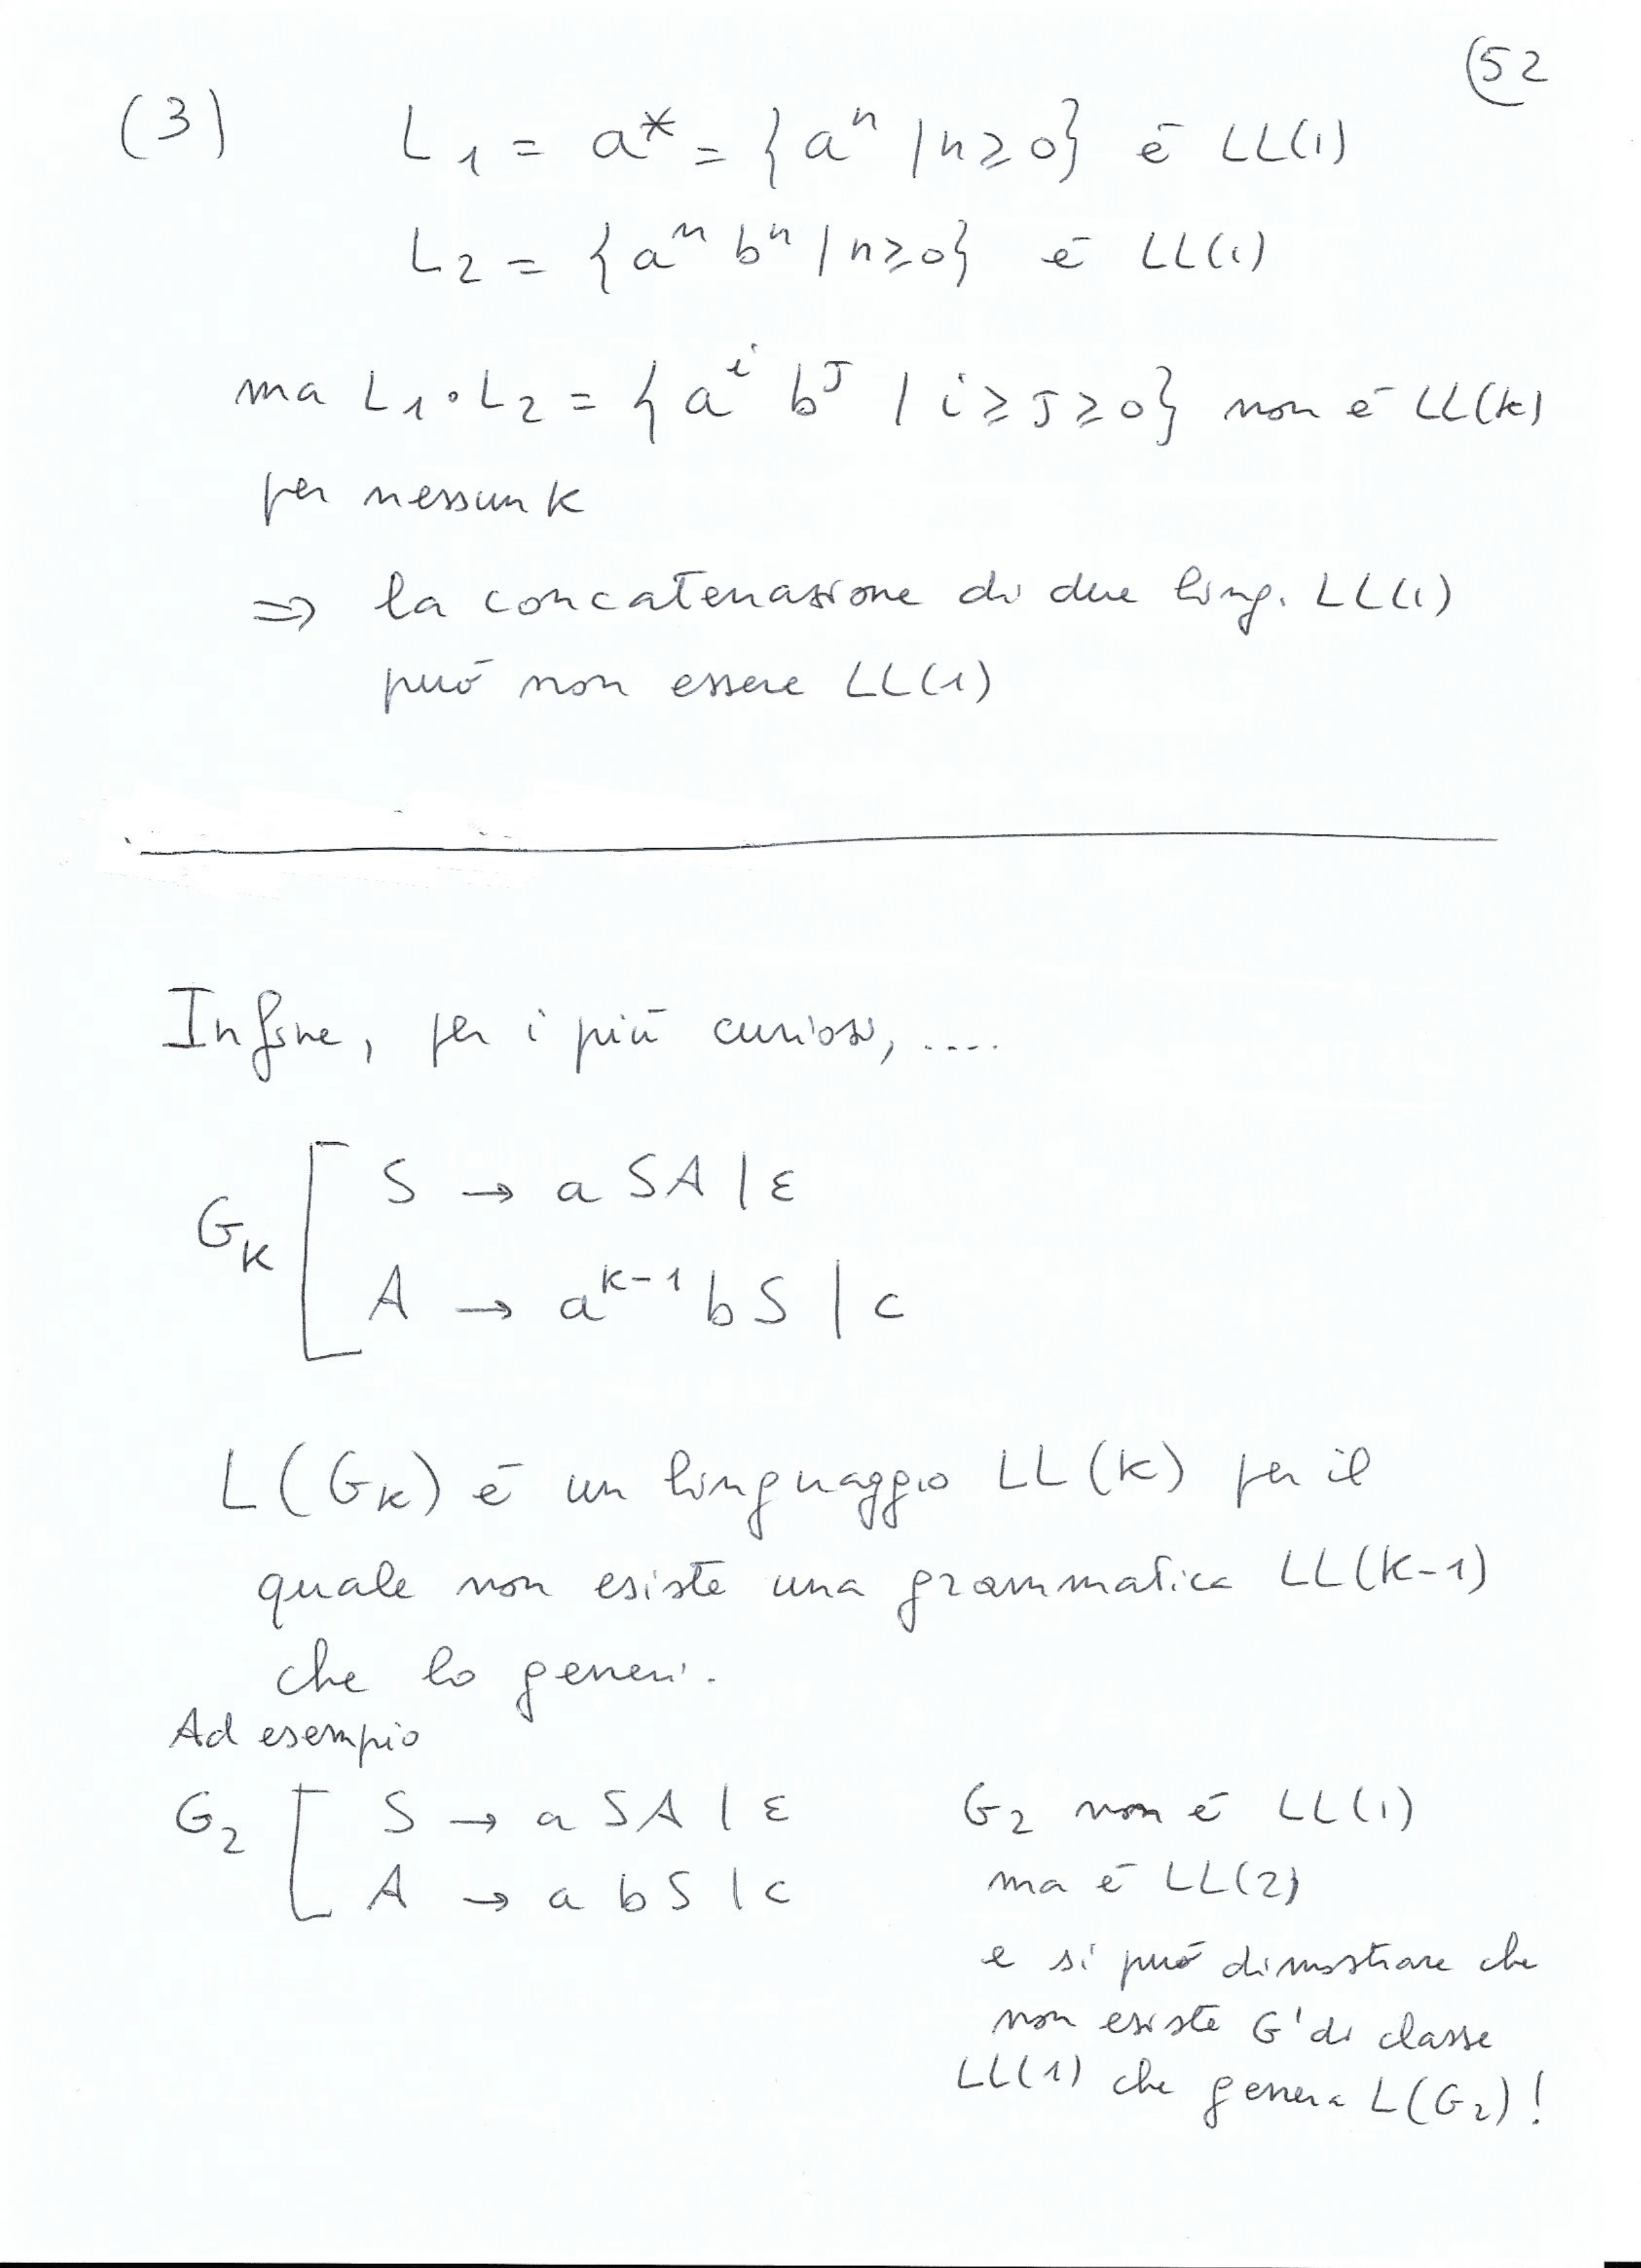 (52
(3) L₁ = a* = {aⁿ | n ≥ 0} é LL(1)
L₂ = {aⁿ bⁿ | n ≥ 0} é LL(1)
ma L₁ · L₂ = {aⁱ bᴶ | i ≥ J ≥ 0} non é LL(k)
per nessun k
⇒ la concatenazione di due ling. LL(1)
puó non essere LL(1)
Infine, per i piú curiosi, ....
S → a S A | ε
G_K
A → a^{K-1} b S | c
L(G_K) é un linguaggio LL(K) per il
quale non esiste una grammatica LL(K-1)
che lo generi.
Ad esempio
G₂ [ S → a S A | ε G₂ non é LL(1)
A → a b S | c ma é LL(2)
e si puó dimostrare che
non esiste G' di classe
LL(1) che genera L(G₂)!